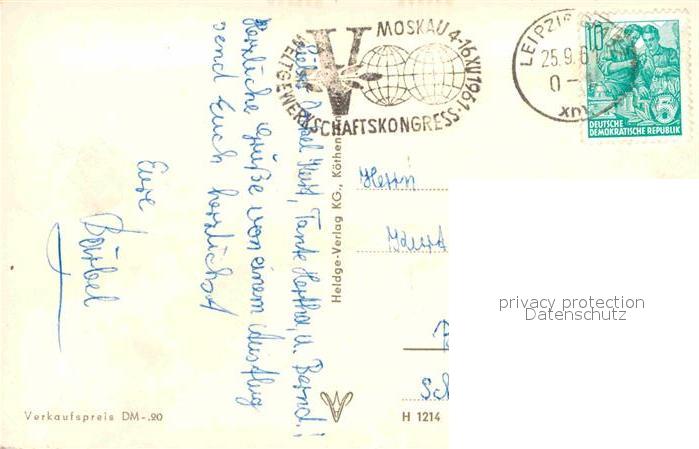 MOSKAU 4-16.XII.1961
V. WELTGEWERKSCHAFTSKONGRESS
LEIPZIG
25.9.61
0
10
DEUTSCHE
DEMOKRATISCHE REPUBLIK
Lieber Onkel Kurt, Tante Hertha, u. Bernd!
Herzliche Grüße von einem Ausflug
send Euch herzlichst
Eure
Bärbel
Heldge-Verlag KG., Köthen
Herrn
Kurt
Sch
privacy protection
Datenschutz
Verkaufspreis DM-.20
H 1214